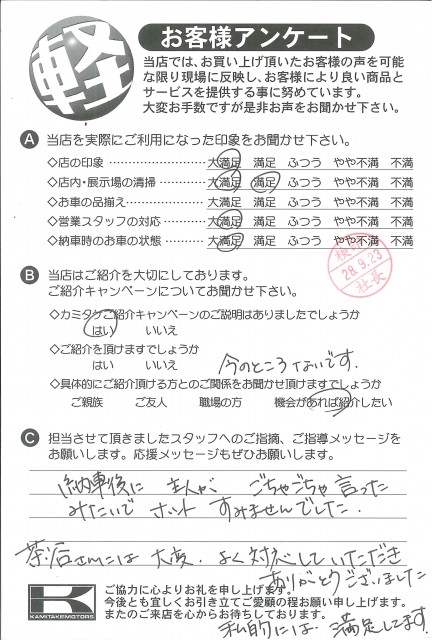 軽
お客様アンケート
当店では、お買い上げ頂いたお客様の声を可能
な限り現場に反映し、お客様により良い商品と
サービスを提供する事に努めています。
大変お手数ですが是非お声をお聞かせ下さい。
A 当店を実際にご利用になった印象をお聞かせ下さい。
◇店の印象 ……………………… 大満足 満足 ふつう やや不満 不満
◇店内・展示場の清掃 ………… 大満足 満足 ふつう やや不満 不満
◇お車の品揃え ………………… 大満足 満足 ふつう やや不満 不満
◇営業スタッフの対応 ………… 大満足 満足 ふつう やや不満 不満
◇納車時のお車の状態 ………… 大満足 満足 ふつう やや不満 不満
28.9.23
社長
B 当店はご紹介を大切にしております。
ご紹介キャンペーンについてお聞かせ下さい。
◇カミタケご紹介キャンペーンのご説明はありましたでしょうか
はい いいえ
◇ご紹介を頂けますでしょうか
はい いいえ 今のところないです.
◇具体的にご紹介頂ける方とのご関係をお聞かせ頂けますでしょうか
ご親族 ご友人 職場の方 機会があれば紹介したい
C 担当させて頂きましたスタッフへのご指摘、ご指導メッセージを
お願いします。応援メッセージもぜひお願いします。
納車後に 主人が ごちゃごちゃ言った
みたいで ホント すみませんでした.
茶谷さんには 大変. よく対応していただき
ありがとうございました
私的には 満足してます.
K
KAMITAKEMOTORS
ご協力に心よりお礼を申し上げます。
今後とも宜しくお引き立てご愛顧の程お願い申し上げます。
またのご来店を心からお待ちしております。